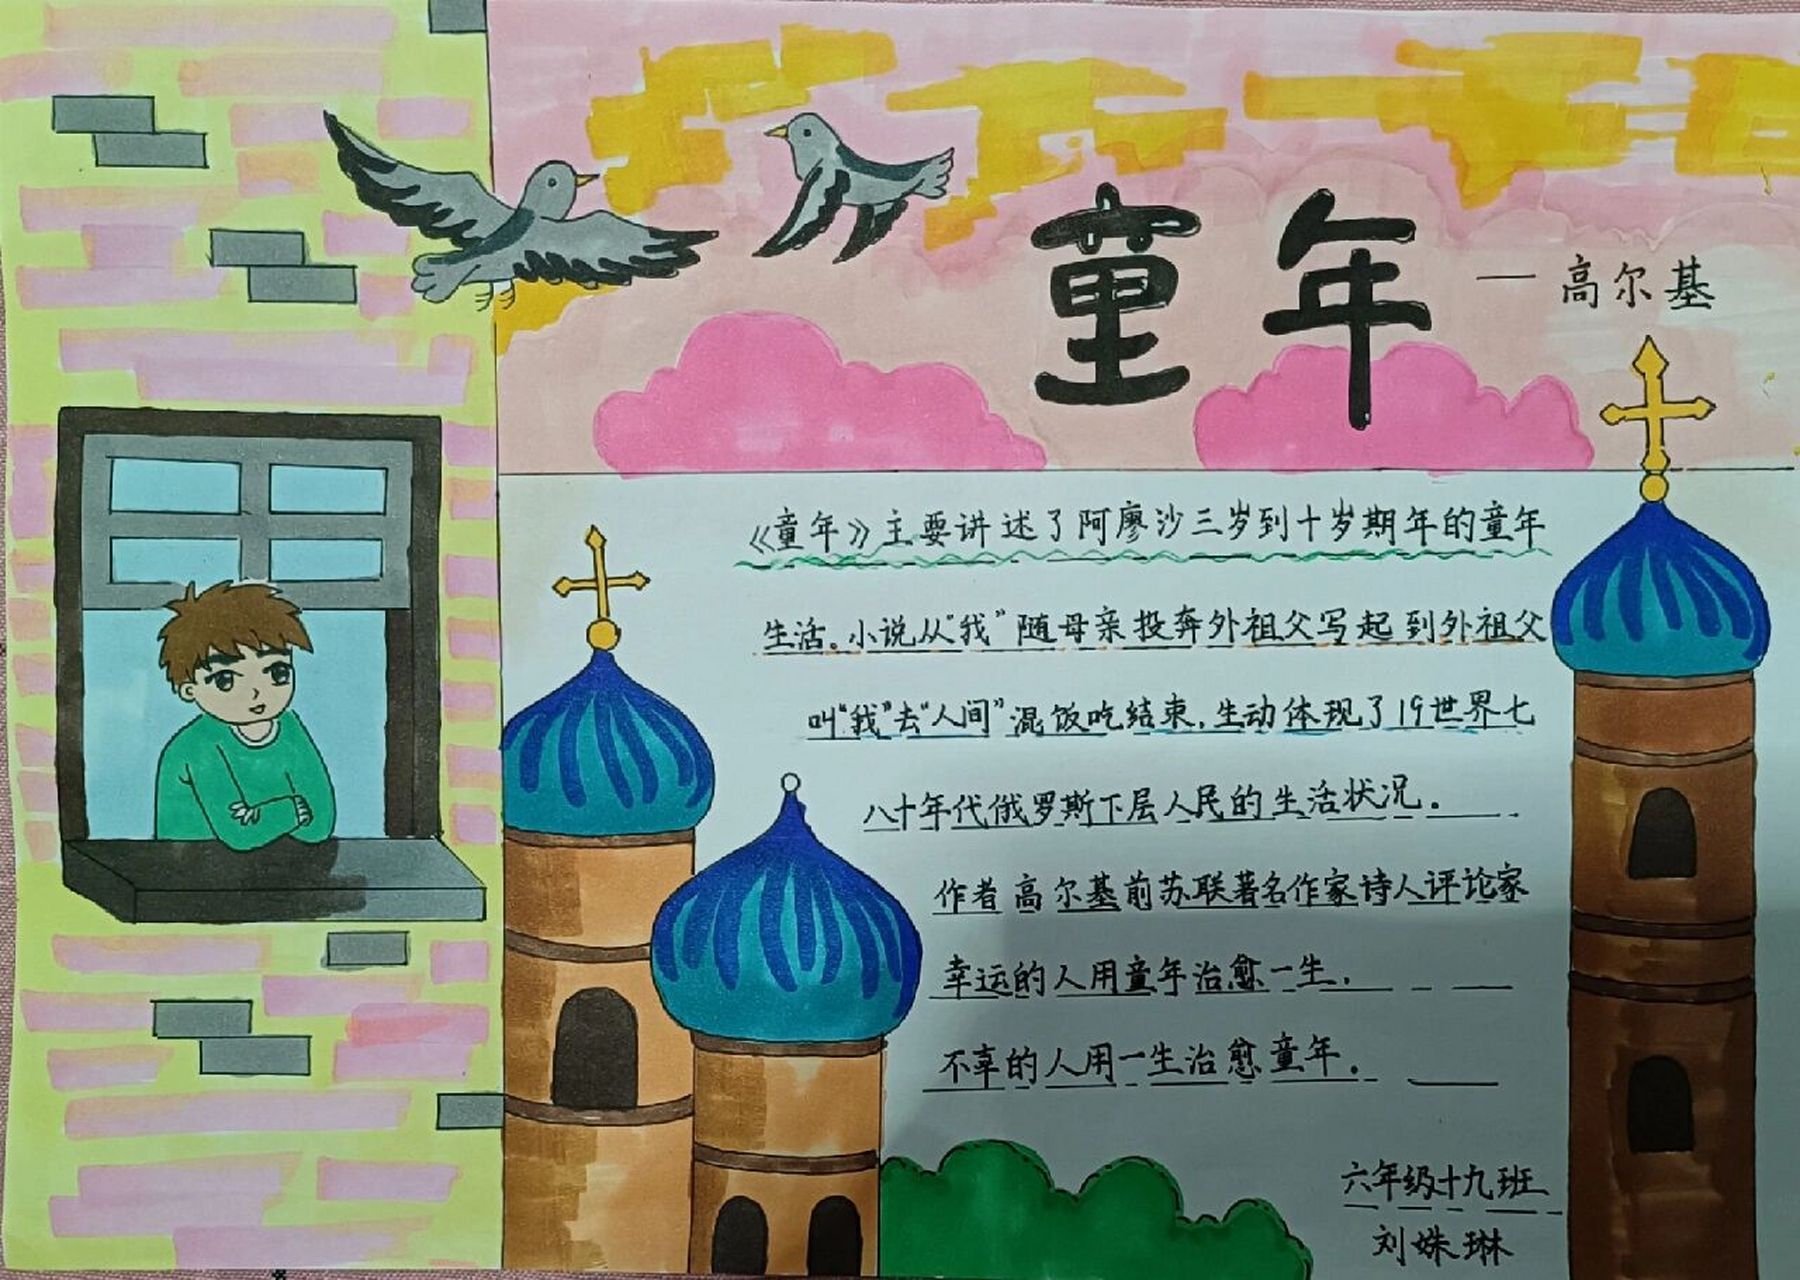 童年
— 高尔基
《童年》主要讲述了阿廖沙三岁到十岁期年的童年
生活。小说从“我”随母亲投奔外祖父写起到外祖父
叫“我”去“人间”混饭吃结束,生动体现了19世界七
八十年代俄罗斯下层人民的生活状况.
作者高尔基前苏联著名作家诗人评论家
幸运的人用童年治愈一生.
不幸的人用一生治愈童年.
六年级十九班
刘姝琳